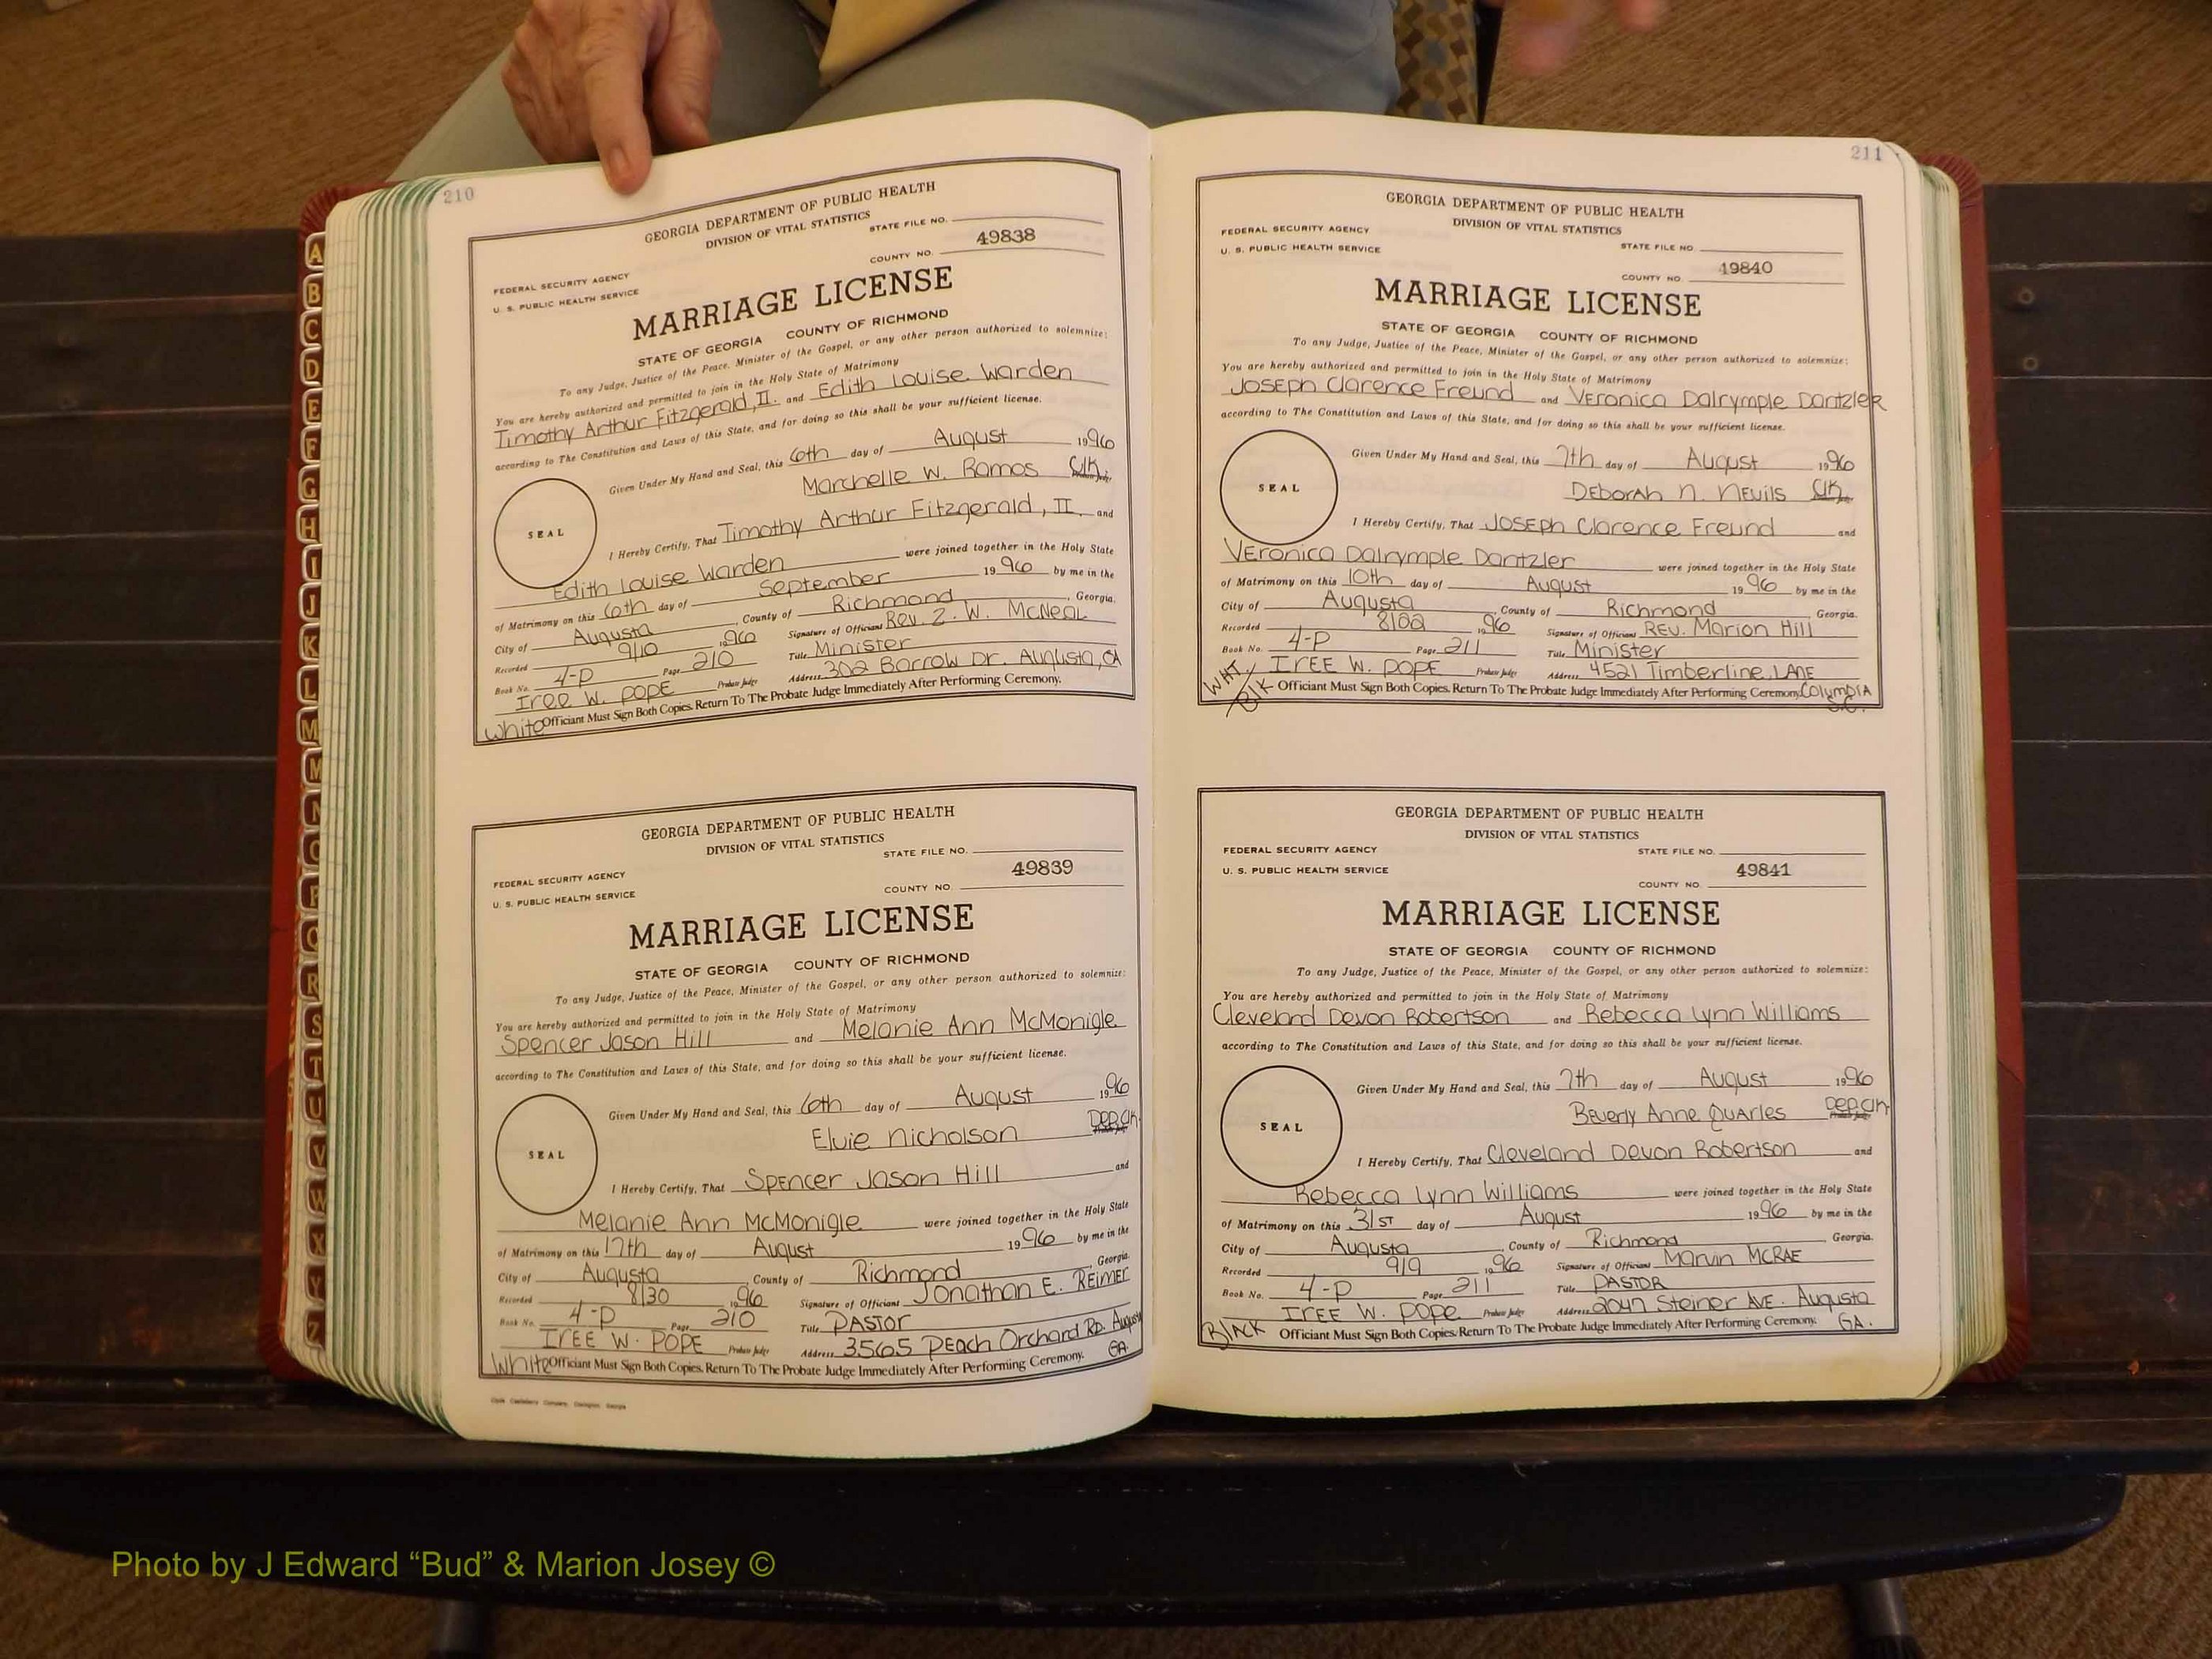 210
GEORGIA DEPARTMENT OF PUBLIC HEALTH
DIVISION OF VITAL STATISTICS
STATE FILE NO.
49838
COUNTY NO.
FEDERAL SECURITY AGENCY
U. S. PUBLIC HEALTH SERVICE
MARRIAGE LICENSE
STATE OF GEORGIA COUNTY OF RICHMOND
To any Judge, Justice of the Peace, Minister of the Gospel, or any other person authorized to solemnize:
You are hereby authorized and permitted to join in the Holy State of Matrimony
Timothy Arthur Fitzgerald, II. and Edith Louise Warden
according to The Constitution and Laws of this State, and for doing so this shall be your sufficient license.
Given Under My Hand and Seal, this 6th day of August 1996
Marchelle W. Ramos Clk.
SEAL
I Hereby Certify, That Timothy Arthur Fitzgerald, II. and
Edith Louise Warden were joined together in the Holy State
of Matrimony on this 6th day of September 1996 by me in the
City of Augusta, County of Richmond, Georgia.
Recorded 9/10 1996 Signature of Officiant Rev. Z. W. McNeal
Book No. 4-P Page 210 Title Minister
Iree W. Pope Probate Judge Address 302 Barrow Dr. Augusta, GA
White Officiant Must Sign Both Copies. Return To The Probate Judge Immediately After Performing Ceremony.
GEORGIA DEPARTMENT OF PUBLIC HEALTH
DIVISION OF VITAL STATISTICS
STATE FILE NO.
49839
COUNTY NO.
FEDERAL SECURITY AGENCY
U. S. PUBLIC HEALTH SERVICE
MARRIAGE LICENSE
STATE OF GEORGIA COUNTY OF RICHMOND
To any Judge, Justice of the Peace, Minister of the Gospel, or any other person authorized to solemnize:
You are hereby authorized and permitted to join in the Holy State of Matrimony
Spencer Jason Hill and Melanie Ann McMonigle
according to The Constitution and Laws of this State, and for doing so this shall be your sufficient license.
Given Under My Hand and Seal, this 6th day of August 1996
Elvie Nicholson Dep. Clk.
SEAL
I Hereby Certify, That Spencer Jason Hill and
Melanie Ann McMonigle were joined together in the Holy State
of Matrimony on this 17th day of August 1996 by me in the
City of Augusta, County of Richmond, Georgia.
Recorded 8/30 1996 Signature of Officiant Jonathan E. Reimer
Book No. 4-P Page 210 Title Pastor
Iree W. Pope Probate Judge Address 3565 Peach Orchard Rd. Augusta
White Officiant Must Sign Both Copies. Return To The Probate Judge Immediately After Performing Ceremony. GA.
211
GEORGIA DEPARTMENT OF PUBLIC HEALTH
DIVISION OF VITAL STATISTICS
FEDERAL SECURITY AGENCY
U. S. PUBLIC HEALTH SERVICE
STATE FILE NO
49840
COUNTY NO.
MARRIAGE LICENSE
STATE OF GEORGIA COUNTY OF RICHMOND
To any Judge, Justice of the Peace, Minister of the Gospel, or any other person authorized to solemnize:
You are hereby authorized and permitted to join in the Holy State of Matrimony
Joseph Clarence Freund and Veronica Dalrymple Dantzler
according to The Constitution and Laws of this State, and for doing so this shall be your sufficient license.
Given Under My Hand and Seal, this 7th day of August 1996
Deborah N. Nevils Clk.
SEAL
I Hereby Certify, That Joseph Clarence Freund and
Veronica Dalrymple Dantzler were joined together in the Holy State
of Matrimony on this 10th day of August 1996 by me in the
City of Augusta, County of Richmond, Georgia.
Recorded 8/22 1996 Signature of Officiant Rev. Marion Hill
Book No. 4-P Page 211 Title Minister
Iree W. Pope Probate Judge Address 4521 Timberline Lane
WHT./Blk Officiant Must Sign Both Copies. Return To The Probate Judge Immediately After Performing Ceremony. Columbia
S.C.
GEORGIA DEPARTMENT OF PUBLIC HEALTH
DIVISION OF VITAL STATISTICS
FEDERAL SECURITY AGENCY
U. S. PUBLIC HEALTH SERVICE
STATE FILE NO.
49841
COUNTY NO.
MARRIAGE LICENSE
STATE OF GEORGIA COUNTY OF RICHMOND
To any Judge, Justice of the Peace, Minister of the Gospel, or any other person authorized to solemnize:
You are hereby authorized and permitted to join in the Holy State of Matrimony
Cleveland Devon Robertson and Rebecca Lynn Williams
according to The Constitution and Laws of this State, and for doing so this shall be your sufficient license.
Given Under My Hand and Seal, this 7th day of August 1996
Beverly Anne Quarles Dep. Clk.
SEAL
I Hereby Certify, That Cleveland Devon Robertson and
Rebecca Lynn Williams were joined together in the Holy State
of Matrimony on this 31st day of August 1996 by me in the
City of Augusta, County of Richmond, Georgia.
Recorded 9/9 1996 Signature of Officiant Marvin McRae
Book No. 4-P Page 211 Title Pastor
Iree W. Pope Probate Judge Address 2047 Steiner Ave. Augusta
Black Officiant Must Sign Both Copies. Return To The Probate Judge Immediately After Performing Ceremony. GA.
A
B
C
D
E
F
G
H
I
J
K
L
M
M
N
O
P
Q
R
S
T
U
V
W
X
Y
Z
Photo by J Edward “Bud” & Marion Josey ©